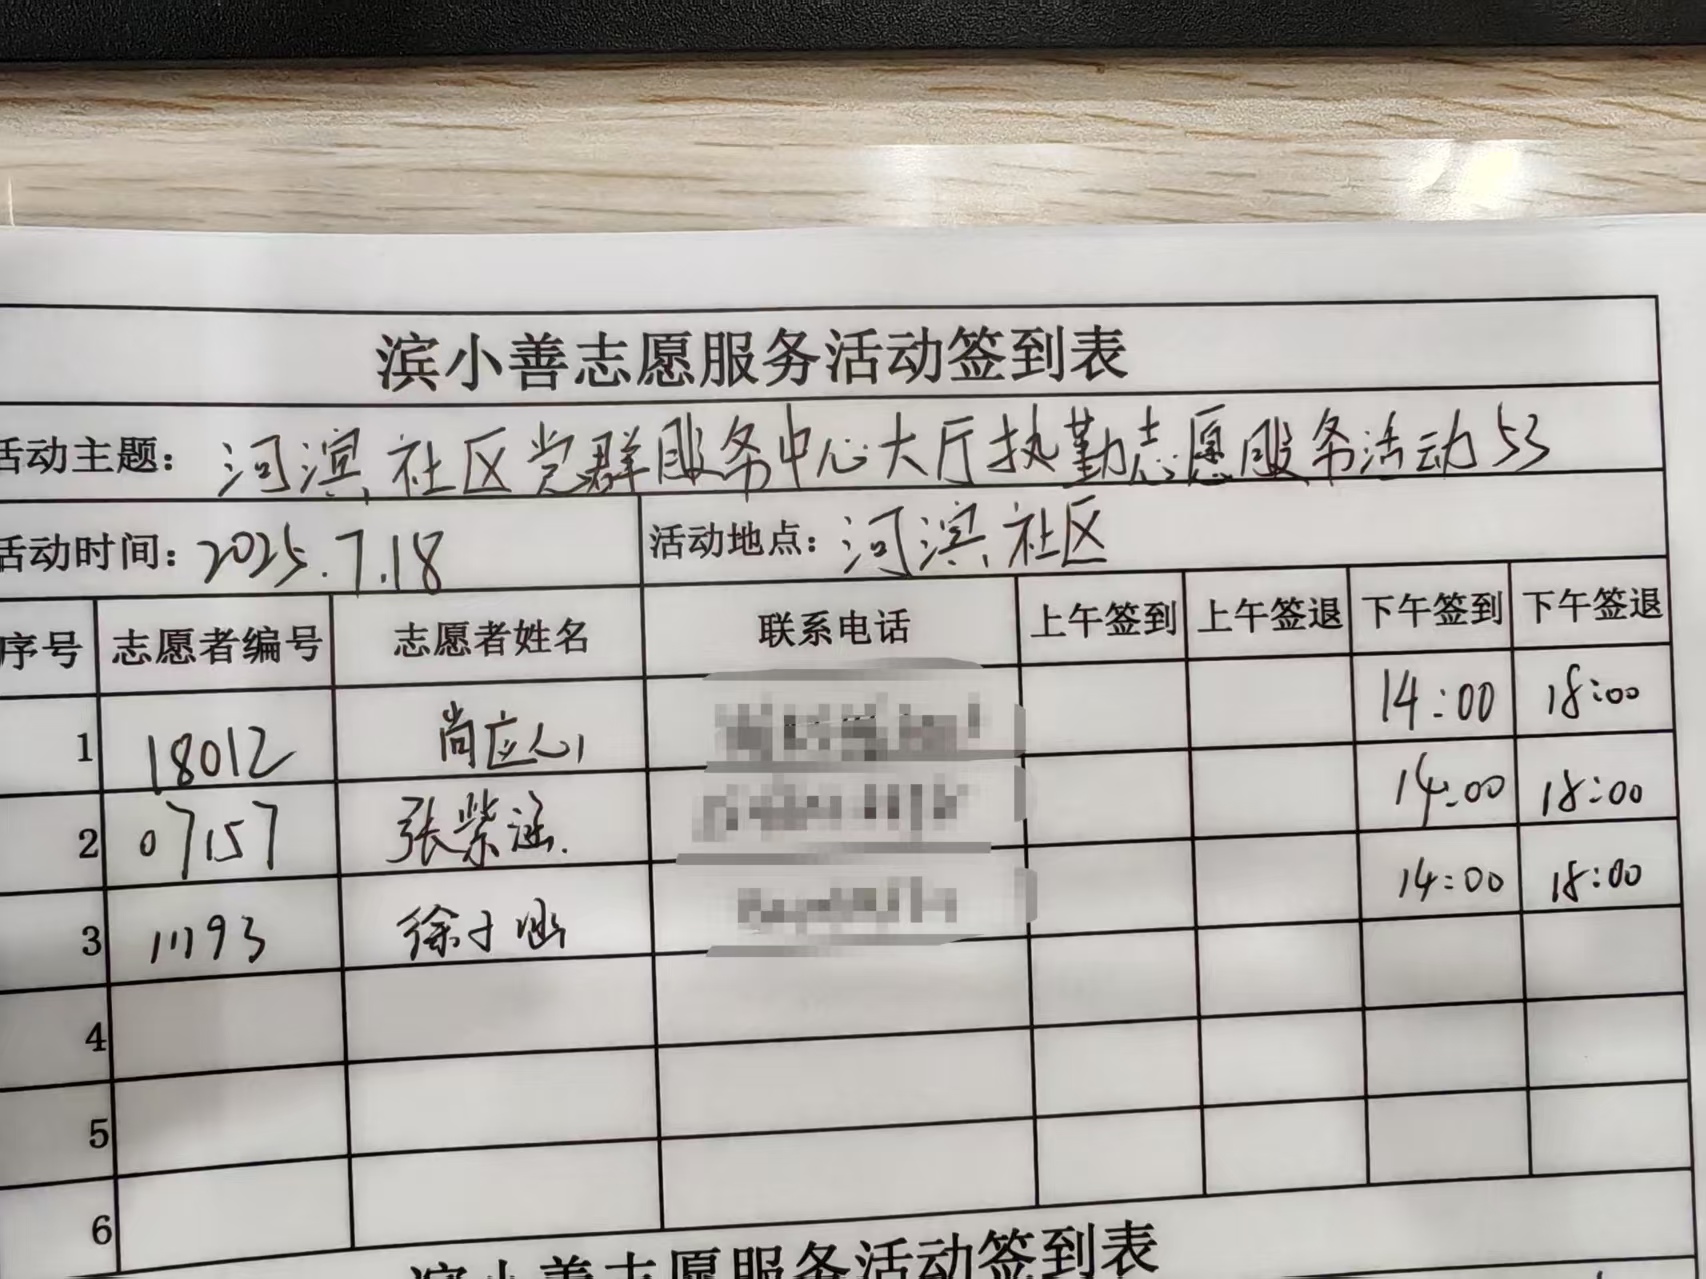 滨小善志愿服务活动签到表
活动主题：河滨社区党群服务中心大厅执勤志愿服务活动53
活动时间：2025.7.18 活动地点：河滨社区
序号 志愿者编号 志愿者姓名 联系电话 上午签到 上午签退 下午签到 下午签退
1 18012 尚应心 14:00 18:00
2 07157 张紫涵 14:00 18:00
3 11193 徐子涵 14:00 18:00
4
5
6
滨小善志愿服务活动签到表